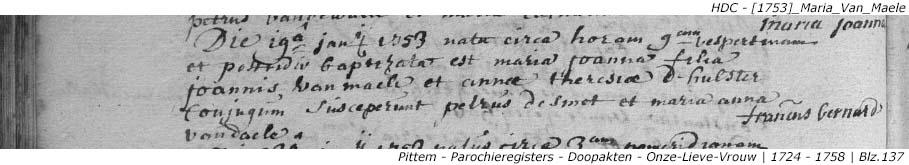 HDC - [1753]_Maria_Van_Maele
petrus
maria joanna
Die 19a janrij 1753 nata circa horam 9am vespertinam
et postridie baptizata est maria joanna filia
joannis vanmaele et annae theresiae d'hulster
Conjugum Susceperunt petrus desmet et maria anna
vandaele
franciscus bernard
1753 natus circa 3am
Pittem - Parochieregisters - Doopakten - Onze-Lieve-Vrouw | 1724 - 1758 | Blz.137